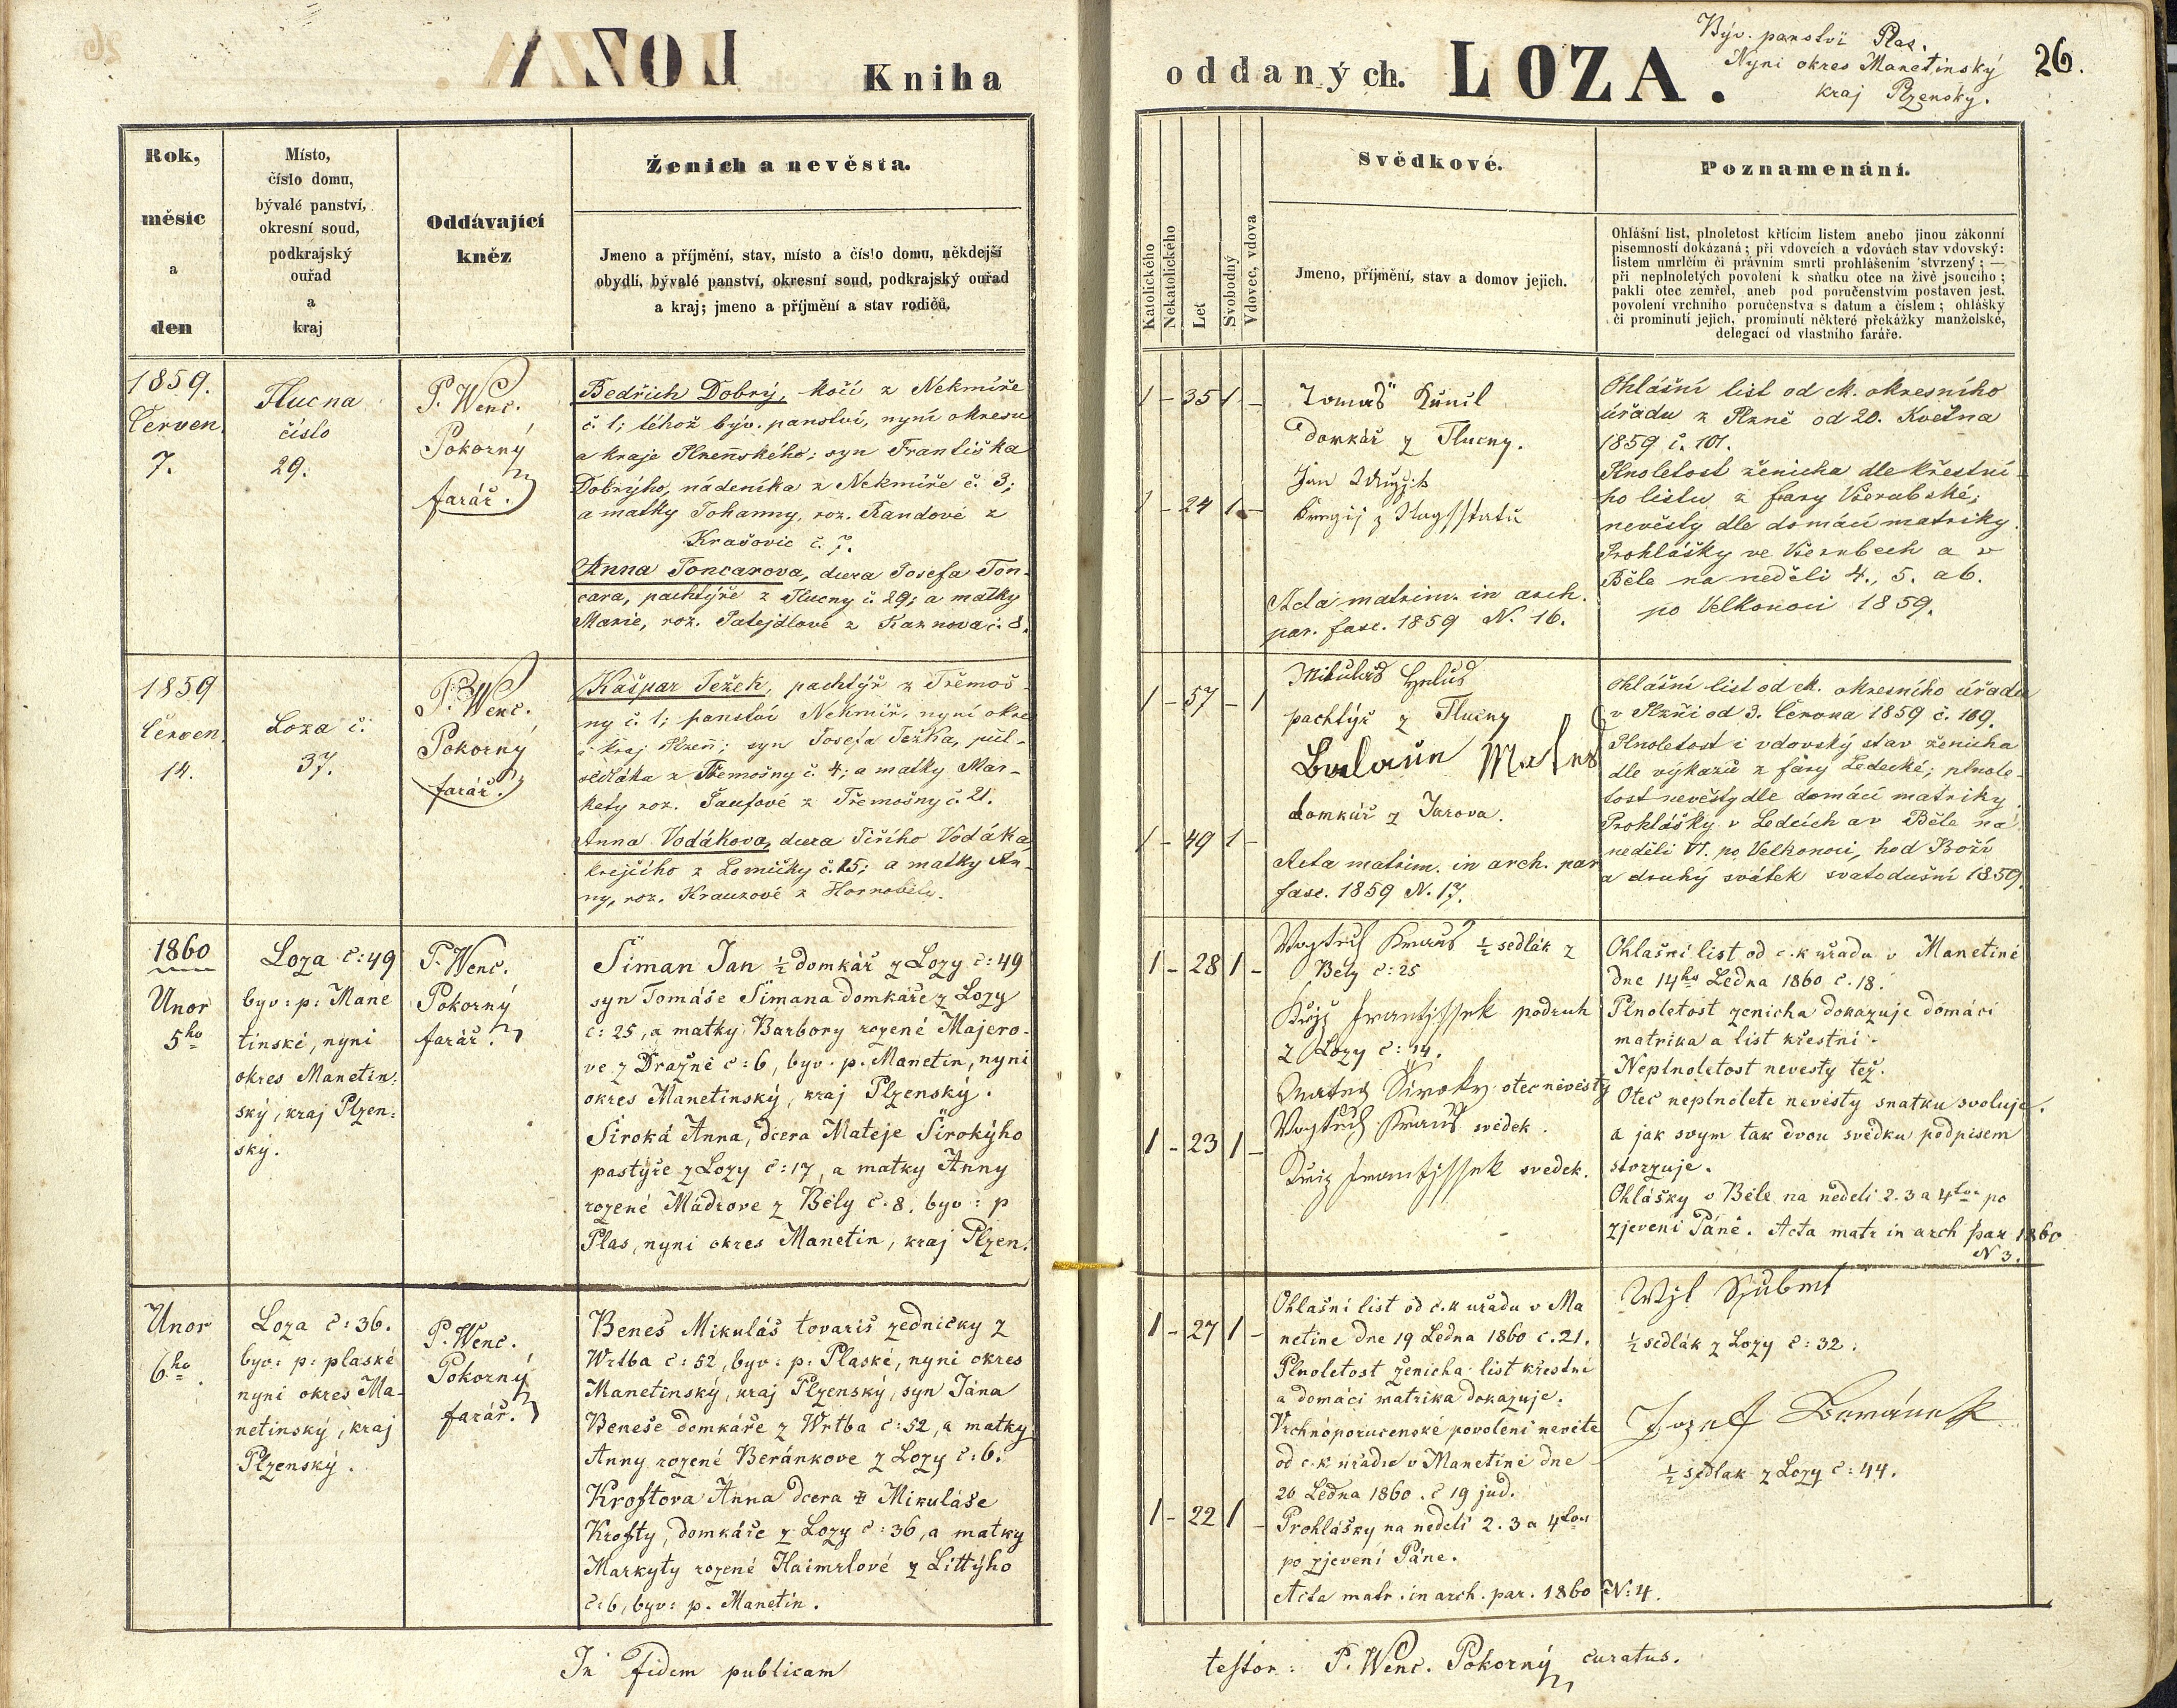 Kniha
oddaných. LOZA.
Býv. panství Plas.
Nyni okres Manetinský
kraj Plzenský.
26.
Rok,
měsíc
a
den
Místo,
číslo domu,
bývalé panství,
okresní soud,
podkrajský
ouřad
a
kraj
Oddávající
kněz
Ženich a nevěsta.
Jmeno a příjmění, stav, místo a číslo domu, někdejší
obydlí, bývalé panství, okresní soud, podkrajský ouřad
a kraj; jmeno a příjmění a stav rodičů.
Katolického
Nekatolického
Let
Svobodný
Vdovec, vdova
Svědkové.
Jmeno, příjmění, stav a domov jejich.
Poznamenání.
Ohlášní list, plnoletost křtícím listem anebo jinou zákonní
písemností dokázaná; při vdovcích a vdovách stav vdovský:
listem umrlčím či právním smrti prohlášením stvrzený; —
při neplnoletých povolení k sňatku otce na živě jsoucího;
pakli otec zemřel, aneb pod poručenstvím postaven jest,
povolení vrchního poručenstva s datum a číslem; ohlášky
či prominutí jejich, prominutí některé překážky manželské,
delegací od vlastního faráře.
1859.
Červen.
7.
Tlucna
číslo
29.
P. Wenc.
Pokorný
farář.
Bedřich Dobrý, kočí z Nekmíře
č. 1; téhož býv. panství, nyní okresu
a kraje Plzeňského; syn Františka
Dobrýho, nádeníka z Nekmíře č. 3;
a matky Johanny, roz. Randové z
Krašovic č. 7.
Anna Toncarova, dcera Josefa Ton-
cara, pachtýře z Tlucny č. 29; a matky
Marie, roz. Patejdlové z Kaznova č. 8.
1 - 35 1 -
1 - 24 1 -
Tomaš
Domkář z Tlucny.
Jan
Acta matrim. in arch.
par. fasc. 1859 N. 16.
Ohlášní list od ck. okresního
úřadu z Plzně od 20. Května
1859 č. 101.
Plnoletost ženicha dle křestní-
ho listu z fary Všerubské;
nevěsty dle domácí matriky.
Prohlášky ve Všerubech a v
Běle na neděli 4., 5. a 6.
po Velkonoci 1859.
1859
Červen.
14.
Loza č.
37.
P. Wenc.
Pokorný
farář.
Kašpar Ježek, pachtýř z Třemoš-
ny č. 1; panství Nekmíř, nyní okre
a kraj Plzeň; syn Josefa Ježka, půl-
sedláka z Třemošny č. 4; a matky Mar-
kety roz. Šaufové z Třemošny č. 21.
Anna Vodákova, dcera Jiřího Vodáka,
krejčího z Lomičky č. 15; a matky An-
ny, roz. Krauzové z Hornobělé.
1 - 57 - 1
1 - 49 1 -
Mikulaš
pachtýř z Tlucny
domkář z Jarova.
Acta matrim. in arch. par
fasc. 1859 N. 17.
Ohlášní list od ck. okresního úřadu
v Plzňi od 3. Června 1859 č. 109.
Plnoletost i vdovský stav ženicha
dle výkazů z fary Ledecké; plnole-
tost nevěsty dle domácí matriky.
Prohlášky v Ledcích a v Běle na
neděli VI. po Velkonoci, hod Boží
a druhý svátek svatodušní 1859.
1860
Unor
5ho
Loza č: 49
byv: p: Mane
tinské, nyni
okres Manetin:
ský, kraj Plzen:
ský.
P. Wenc.
Pokorný
farář.
Šiman Jan ½ domkář z Lozy č: 49
syn Tomáše Šimana domkáře z Lozy
č: 25, a matky Barbory rozené Majero-
ve z Dražně č: 6, byv. p. Manetin, nyni
okres Manetinský, kraj Plzenský.
Široká Anna, dcera Mateje Širokýho
pastýře z Lozy č: 17, a matky Anny
rozené Mádrove z Bely č. 8. byv: p
Plas, nyni okres Manetin, kraj Plzen.
1 - 28 1 -
1 - 23 1 -
Wogtiech Kraus ½ sedlák z
Bely č: 25
Křiž Frantissek podruh
z Lozy č: 14.
Široky otec nevěsty
Wogtiech Kraus svědek.
Križ Frantissek svedek.
Ohlašní list od c. k uřadu v Manetině
dne 14ho Ledna 1860 č. 18.
Plnoletost zenicha dokazuje domáci
matrika a list křestní.
Neplnoletost nevesty též.
Otec neplnolete nevěsty snatku svoluje.
a jak svym tak dvou svědku podpisem
stvrzuje.
Ohlášky v Běle na nedeli 2. 3 a 4tou po
zjevení Páně. Acta matr in arch par 1860
N 3.
Unor
6ho.
Loza č: 36.
byv: p: plaské
nyni okres Ma-
netinský, kraj
Plzenský.
P. Wenc.
Pokorný
farář.
Beneš Mikuláš tovariš zednický z
Wrtba č: 52, byv: p: Plaské, nyni okres
Manetinský, kraj Plzenský, syn Jána
Beneše domkáře z Wrtba č: 52, a matky
Anny rozené Beránkove z Lozy č: 6.
Kroftova Anna dcera Mikuláše
Krofty, domkáře z Lozy č: 36, a matky
Markyty rozené Haimrlové z Littýho
č: 6, byv: p. Manetin.
1 - 27 1 -
1 - 22 1 -
Ohlašni list od c. k uřadu v Ma
netine dne 19 Ledna 1860 č. 21.
Plnoletost ženicha list křestní
a domáci matrika dokazuje.
Vrchnoporucenské povoleni
od c. k uřadu v Manetině dne
20 Ledna 1860. č 19 jud.
Prohlášky na nedeli 2. 3 a 4tou
po zjevení Páne.
Acta matr. in arch. par. 1860 N: 4.
½ sedlák z Lozy č: 32.
Jozef Beránek
½ sedlak z Lozy č: 44.
In fidem publicam
testor: P. Wenc. Pokorný curatus.